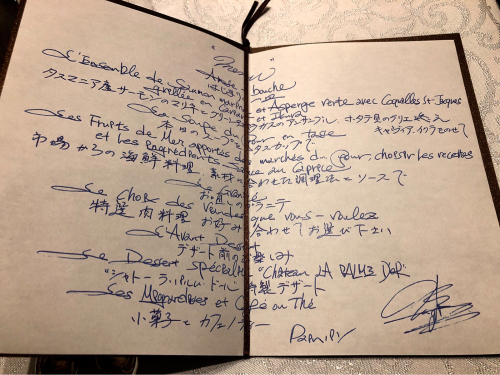 "Menu"
Amuse bouche
L'Ensemble de Saumon mariné et Asperge verte avec Coquilles St-Jacques
grillées en Caviar
タスマニア産サーモンのマリネとグリーンアスパラガスのアンサンブル ホタテ貝のグリエ添え
キャヴィア、イクラをのせて
La Soupe du Jour en tasse
本日のスープ カップで
Les Fruits de Mer apportés des marchés du jour, choisir les recettes
et les Ingrédients
市場からの海鮮料理 素材に合わせた調理法とソースで
Le Granité
お直しのグラニテ
Le Choix des Viandes que vous-voulez
特選肉料理 お好みに合わせてお選び下さい
L'Avant Dessert
デザート前のお楽しみ
Le Dessert spécialité "Château LA PALME D'OR"
"シャトーラ・パルム・ドール" 特製デザート
Les Mignardises et Café ou Thé
小菓子とカフェ/ティー